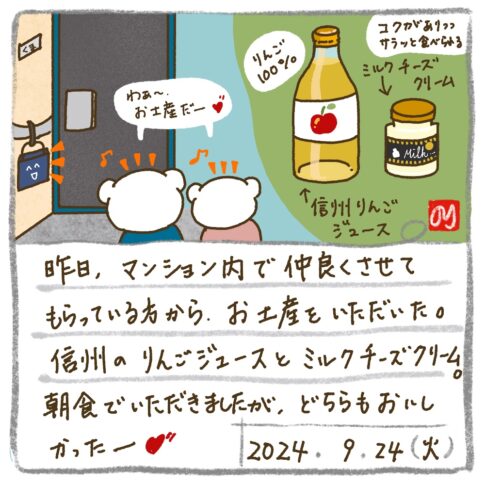 くま
わぁ〜、
お土産だー
りんご
100%
コクがありつつ
サラッと食べられる
ミルクチーズ
クリーム
Milk
信州りんご
ジュース
昨日、マンション内で仲良くさせて
もらっている方から、お土産をいただいた。
信州のりんごジュースとミルクチーズクリーム。
朝食でいただきましたが、どちらもおいし
かったー
2024. 9. 24(火)